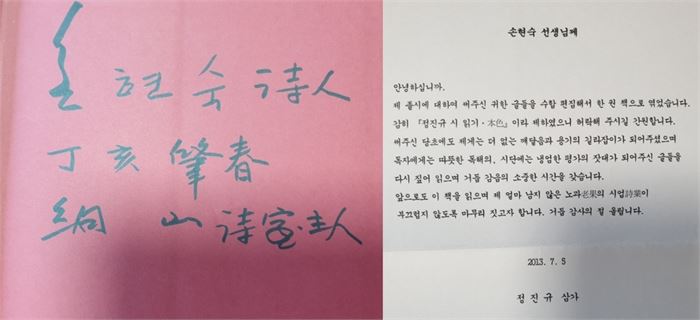 손 현숙 詩人
丁亥 肇春
絅山 詩室主人
손현숙 선생님께
안녕하십니까.
제 졸시에 대하여 써주신 귀한 글들을 수합 편집해서 한 권 책으로 엮었습니다.
감히 『정진규 시 읽기·本色』이라 제하였으니 허락해 주시길 간원합니다.
써주신 당초에도 제게는 더 없는 깨달음과 용기의 길라잡이가 되어주셨으며
독자에게는 따뜻한 독해의, 시단에는 냉엄한 평가의 잣대가 되어주신 글들을
다시 짚어 읽으며 거듭 감읍의 소중한 시간을 갖습니다.
앞으로도 이 책을 읽으며 제 얼마 남지 않은 노과老果의 시업詩業이
부끄럽지 않도록 마무리 짓고자 합니다. 거듭 감사의 절 올립니다.
2013. 7. 5
정진규 삼가